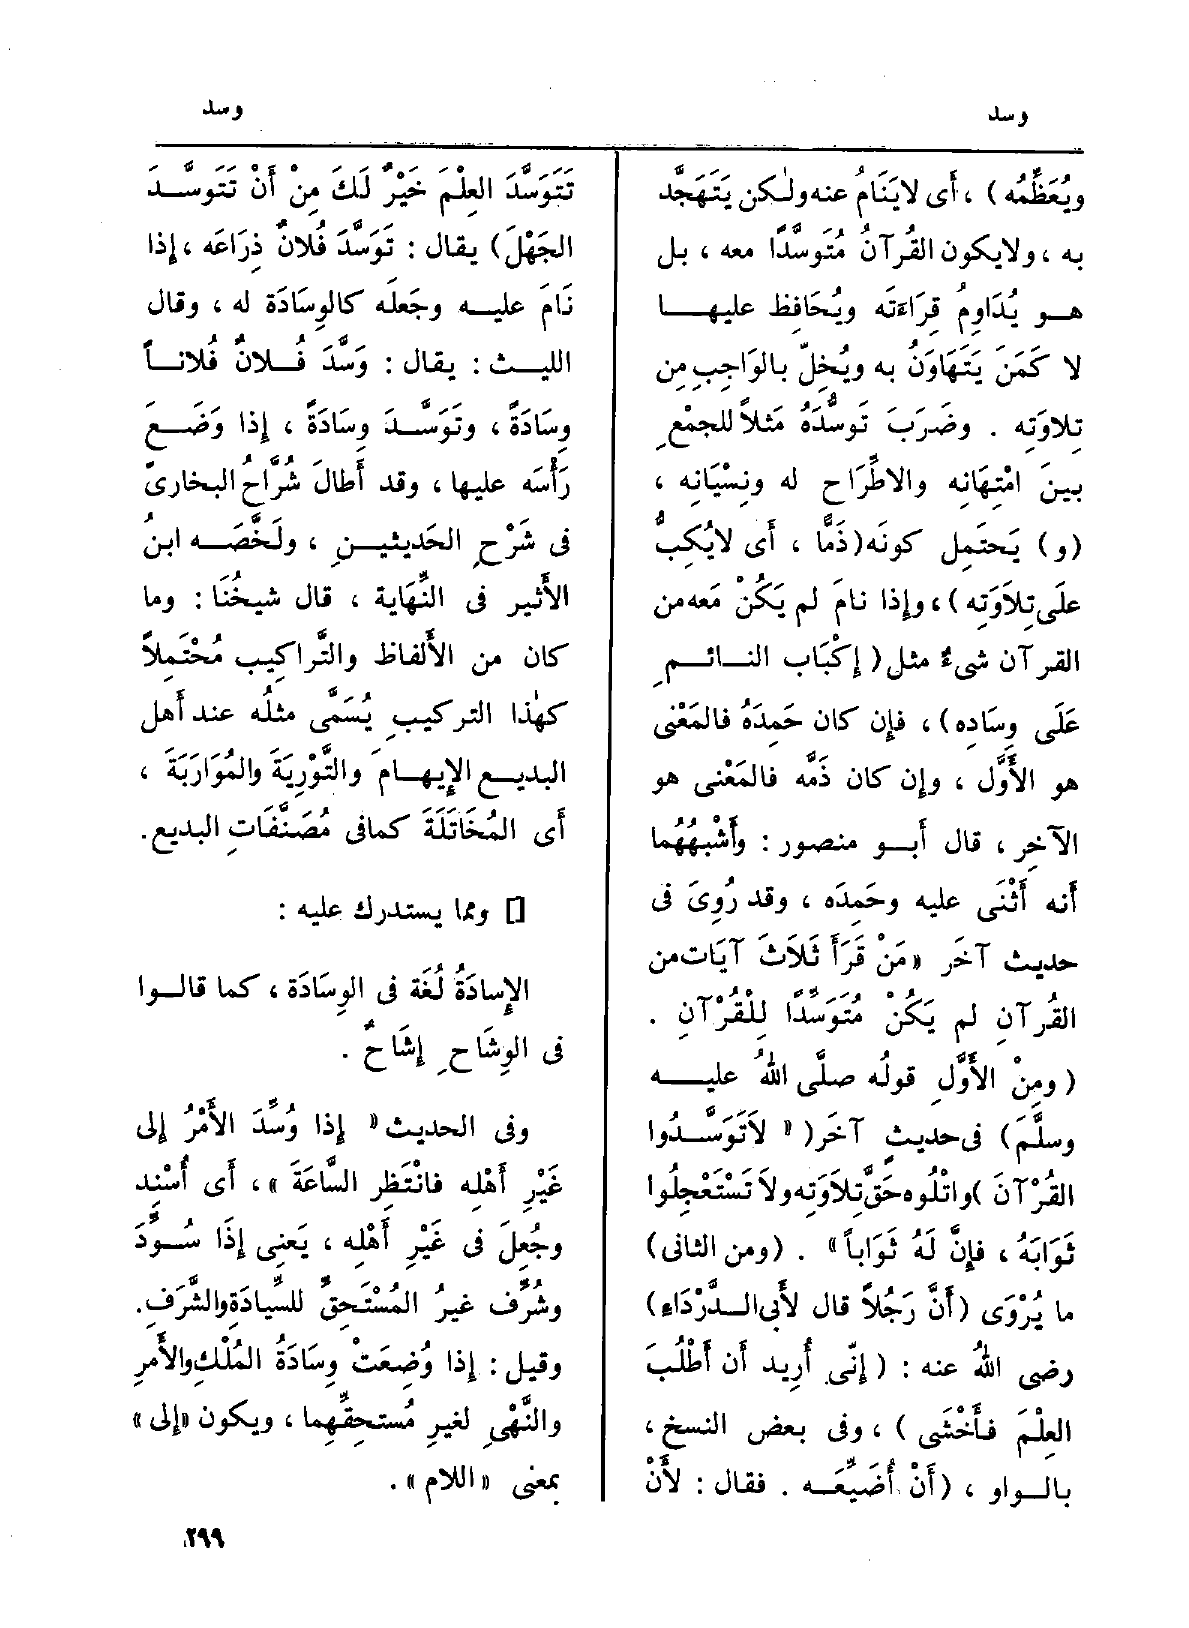 وسد
وسد
ويُعَظِّمُه) ، أَى لايَنَامُ عنه ولٰكن يَتَهَجَّد
به ، ولايكون القُرآنُ مُتَوسِّدًا معه ، بل
هــو يُدَاوِمُ قِرَاءَتَه ويُحَافِظ عليهــا
لا كَمَنَ يَتَهَاوَنُ به ويُخِلّ بالوَاجِبِ مِن
تِلاوَتِه . وضَرَبَ تَوسُّدَهُ مَثلاً للجَمْعِ
بينَ امْتِهَانِه والاطِّرَاح له ونِسْيَانِه ،
(و) يَحتَمِل كونَه (ذَمًّا ، أَى لايُكِبُّ
علَى تِلاَوَتِه) ، وإذا نامَ لم يَكُنْ مَعه من
القرآن شىءٌ مثل (إكْبَاب النــائــمِ
عَلَى وِسَادِه) ، فإن كان حَمِدَهُ فالمَعْنى
هو الأَوَّل ، وإن كان ذَمَّه فالمَعْنى هو
الآخِر ، قال أَبــو منصور : وأَشْبَهُهُما
أَنه أَثْنَى عليه وحَمِدَه ، وقد رُوِىَ فى
حديث آخَر «مَنْ قَرَأَ ثَلاَثَ آيَات من
القُرآنِ لم يَكُنْ مُتَوَسِّدًا لِلْقُرْآنِ .
(ومِنْ الأَوَّلِ قولُه صلَّى اللهُ عليــه
وسلَّمَ) فى حديثٍ آخَرَ («لاَتَوَسَّــدُوا
القُرْآنَ) واتْلُوه حَقَّ تِلاَوَتِه ولاَ تَسْتَعْجِلُوا
ثَوَابَهُ ، فإنَّ لَهُ ثَوَاباً» . (ومن الثانى)
ما يُرْوَى (أَنَّ رَجُلاً قال لأَبى الــدَّرْدَاءِ)
رضى اللهُ عنه : (إنّى أُرِيد أَن أَطْلُبَ
العِلْمَ فــأَخْشَى) ، وفى بعض النسخ ،
بالــواو ، (أَنْ أُضَيِّعَــه . فقال : لأَنْ
تَتَوَسَّدَ العِلْمَ خَيْرٌ لَكَ مِنْ أَنْ تَتَوسَّــدَ
الجَهْلَ) يقال : تَوَسَّدَ فُلانٌ ذِرَاعَه ، إذا
نَامَ عليــه وجَعلَه كالوِسَادَة له ، وقال
الليــث : يقال : وَسَّدَ فُــلانٌ فُلانــاً
وِسَادَةً ، وتَوَسَّــدَ وِسَادَةً ، إذا وَضَــعَ
رَأْسَه عليها ، وقد أَطالَ شُرَّاحُ البخارىّ
فى شَرْحِ الحَديثيــنِ ، ولَخَّصَــه ابنُ
الأَثير فى النِّهَاية ، قال شيخُنَا : وما
كان من الأَلْفاظ والتَّراكِيب مُحْتَمِلاً
كهٰذا التركيبِ يُسَمَّى مثلُه عند أَهل
البديــع الإيهــامَ والتَّوْرِيَةَ والمُوَارَبَةَ ،
أَى المُخَاتَلَةَ كمافى مُصَنَّفَاتِ البديع.
[] ومما يستدرك عليه :
الإسادَةُ لُغَة فى الوِسَادَة ، كما قالــوا
فى الوِشَاحِ إشَاحٌ .
وفى الحديث «إذا وُسِّدَ الأَمْرُ إلى
غَيْرِ أَهْلِه فانْتَظِرِ السَّاعَةَ» ، أَى أُسْنِد
وجُعِلَ فى غَيْرِ أَهْلِه ، يَعنِى إذَا سُــوِّدَ
وشُرِّف غيرُ المُسْتَحِقِّ للسِّيادَةِ والشَّرَفِ.
وقيل : إذا وُضِعَتْ وِسَادَةُ المُلْكِ والأَمرِ
والنَّهْىِ لغيرِ مُستحِقِّهِما ، ويكون «إلى»
بمعنى «اللام» .
٢٩٩